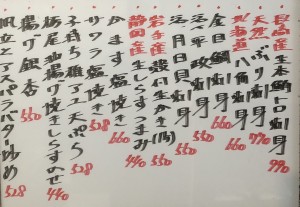 長崎産 生本鮪トロ刺身 990
天然 ぶり刺身 770
北海道 八角刺身 660
金目鯛刺身 660
活〆平政刺身
活〆月日貝刺身
岩手産 殻付生かき(両) 550
静岡産 生しらすつまみ 440
かます塩焼き 660
サワラ塩焼き 528
子持ち稚アユ天ぷら 528
栃尾油揚げ焼きしらすのせ 440
揚げ銀杏 550
帆立とアスパラバター炒め 528